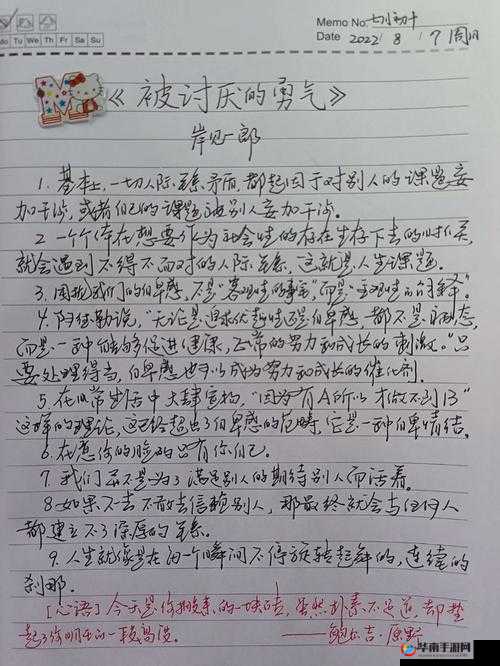 Memo No. 七月初十
Mo Tu We Th Fr Sa Su
Date 2022 / 8 / 7 周日
M
《被讨厌的勇气》
岸见一郎
1. 基本上,一切人际关系矛盾都起因于对别人的课题妄
加干涉,或者自己的课题被别人妄加干涉。
2 一个个体在想要作为社会性的存在生存下去的时候,
就会遇到不得不面对的人际关系,这就是人生课题。
3. 困扰我们的自卑感,不是“客观性的事实”,而是“主观性的解释”。
4. 阿德勒说,“无论是追求优越性还是自卑感,都不是病态,
而是一种能够促进健康,正常的努力和成长的刺激。”只
要处理得当,自卑感也可以成为努力和成长的催化剂。
5. 在日常生活中大肆宣扬,“因为有A所以才做不到B”
这样的理论,这已经超出了自卑感的范畴,它是一种自卑情结。
6. 在意你的脸的只有你自己。
7. 我们并不是为了满足别人的期待别人而活着。
8. 如果不去不敢去信赖别人,那最终就会与任何人
都建立不了深厚的关系。
9. 人生就像是在每一个瞬间不停旋转起舞的,连续的
刹那。
[心语] 今天是你搬来的一块砖,虽然朴素不起眼,却垫
起了你明天的一段高度。
——鲍尔吉·原野
华南手游网